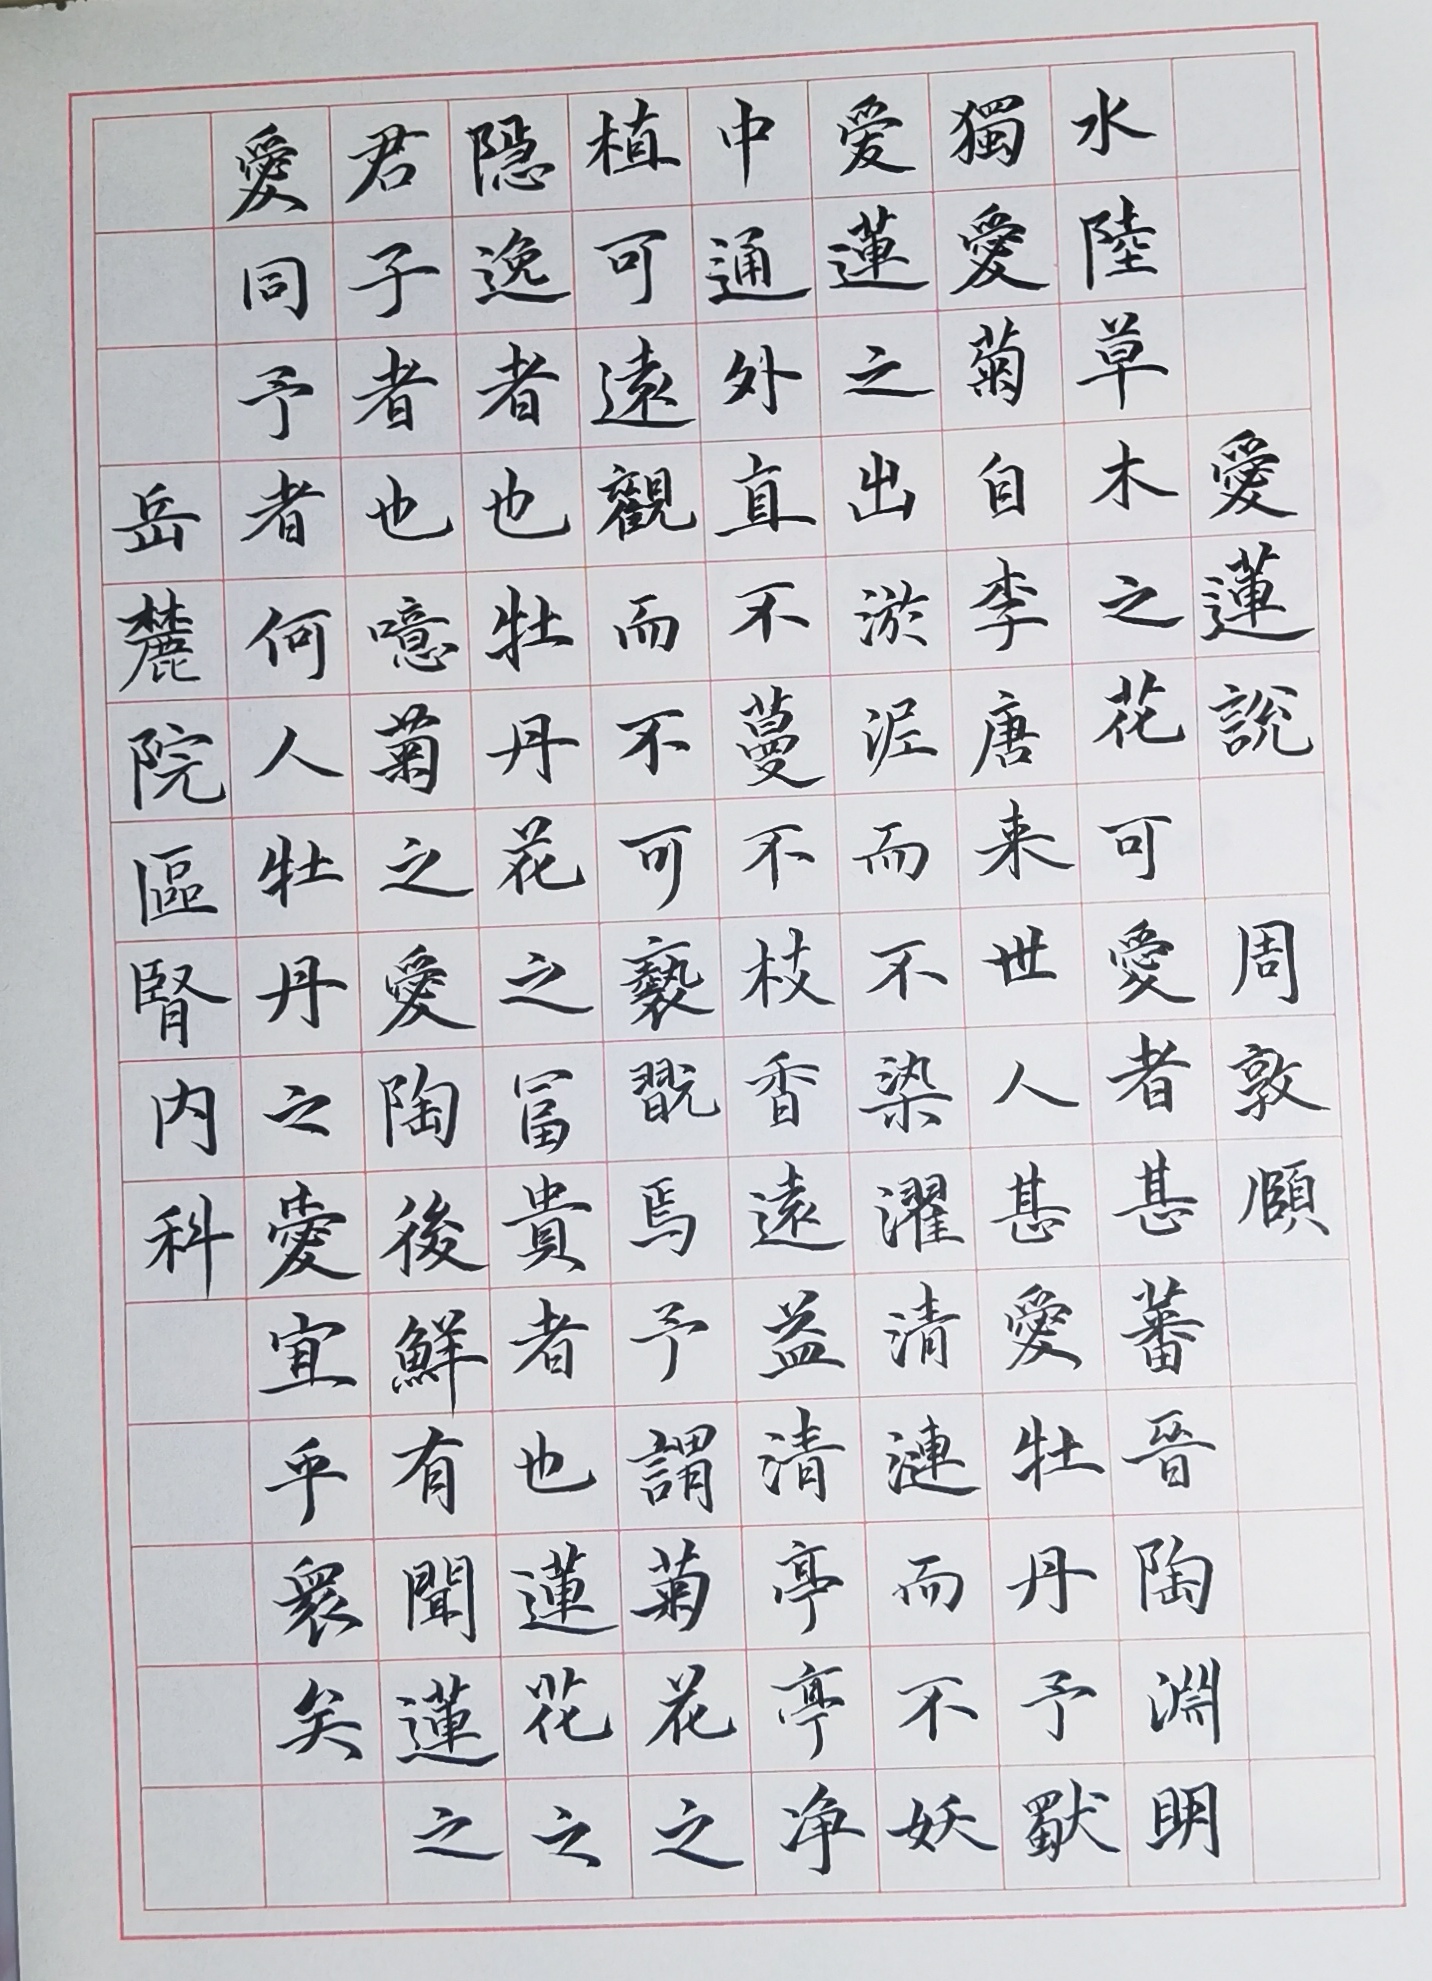 愛蓮說 周敦頤
水陸草木之花可愛者甚蕃晉陶淵明
獨愛菊自李唐来世人甚愛牡丹予獨
爱蓮之出淤泥而不染濯清漣而不妖
中通外直不蔓不枝香遠益清亭亭净
植可遠觀而不可褻翫焉予謂菊花之
隐逸者也牡丹花之冨貴者也蓮花之
君子者也噫菊之愛陶後鮮有聞蓮之
愛同予者何人牡丹之愛宜乎衆矣
岳麓院區腎内科